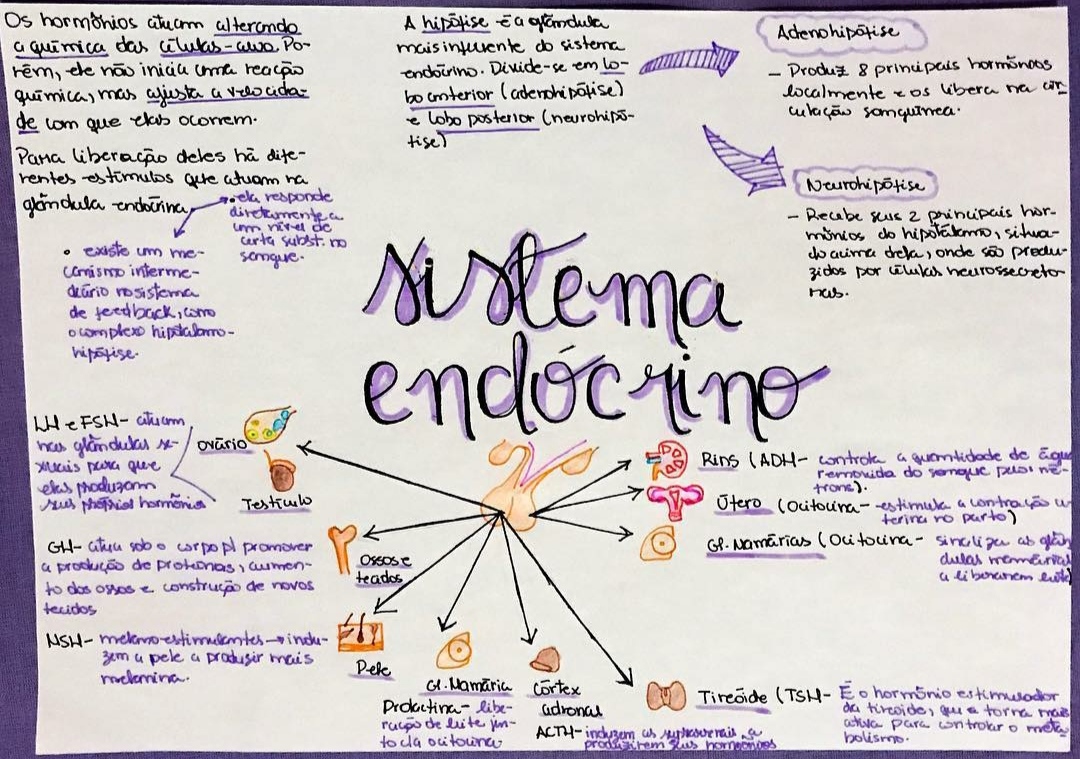 Os hormônios atuam alterando
a química das células-alvo. Po-
rém, ele não inicia uma reação
química, mas ajusta a velocida-
de com que elas ocorrem.
Para liberação deles há dife-
rentes estímulos que atuam na
glândula endócrina
• ela responde
diretamente a
um nível de
certa subst. no
sangue.
• existe um me-
canismo interme-
diário no sistema
de feedback, como
o complexo hipotálamo-
hipófise.
A hipófise é a glândula
mais influente do sistema
endócrino. Divide-se em lo-
bo anterior (adenohipófise)
e lobo posterior (neurohipó-
fise)
Adenohipófise
- Produz 8 principais hormônios
localmente e os libera na cir-
culação sanguínea.
Neurohipófise
- Recebe seus 2 principais hor-
mônios do hipotálamo, situa-
do acima dela, onde são produ-
zidos por células neurossecreto-
ras.
sistema
endócrino
LH e FSH- atuam
nas glândulas se-
xuais para que
elas produzam
seus próprios hormônios
ovário
Testículo
GH- atua sob o corpo p/ promover
a produção de proteínas, aumen-
to dos ossos e construção de novos
tecidos
Ossos e
tecidos
MSH- melano-estimulantes → indu-
zem a pele a produzir mais
melanina.
Pele
Gl. Mamária
Prolactina- libe-
ração de leite jun-
to da ocitocina
Córtex
adrenal
ACTH- induzem as suprarrenais a
produzirem seus hormônios
Rins (ADH- controla a quantidade de água
removida do sangue pelos né-
frons).
Útero (Ocitocina- estimula a contração u-
terina no parto)
Gl. Mamárias (Ocitocina- sinaliza as glân
dulas mamárias
a liberarem leite)
Tireóide (TSH- É o hormônio estimulador
da tireóide, que a torna mais
ativa para controlar o meta-
bolismo.